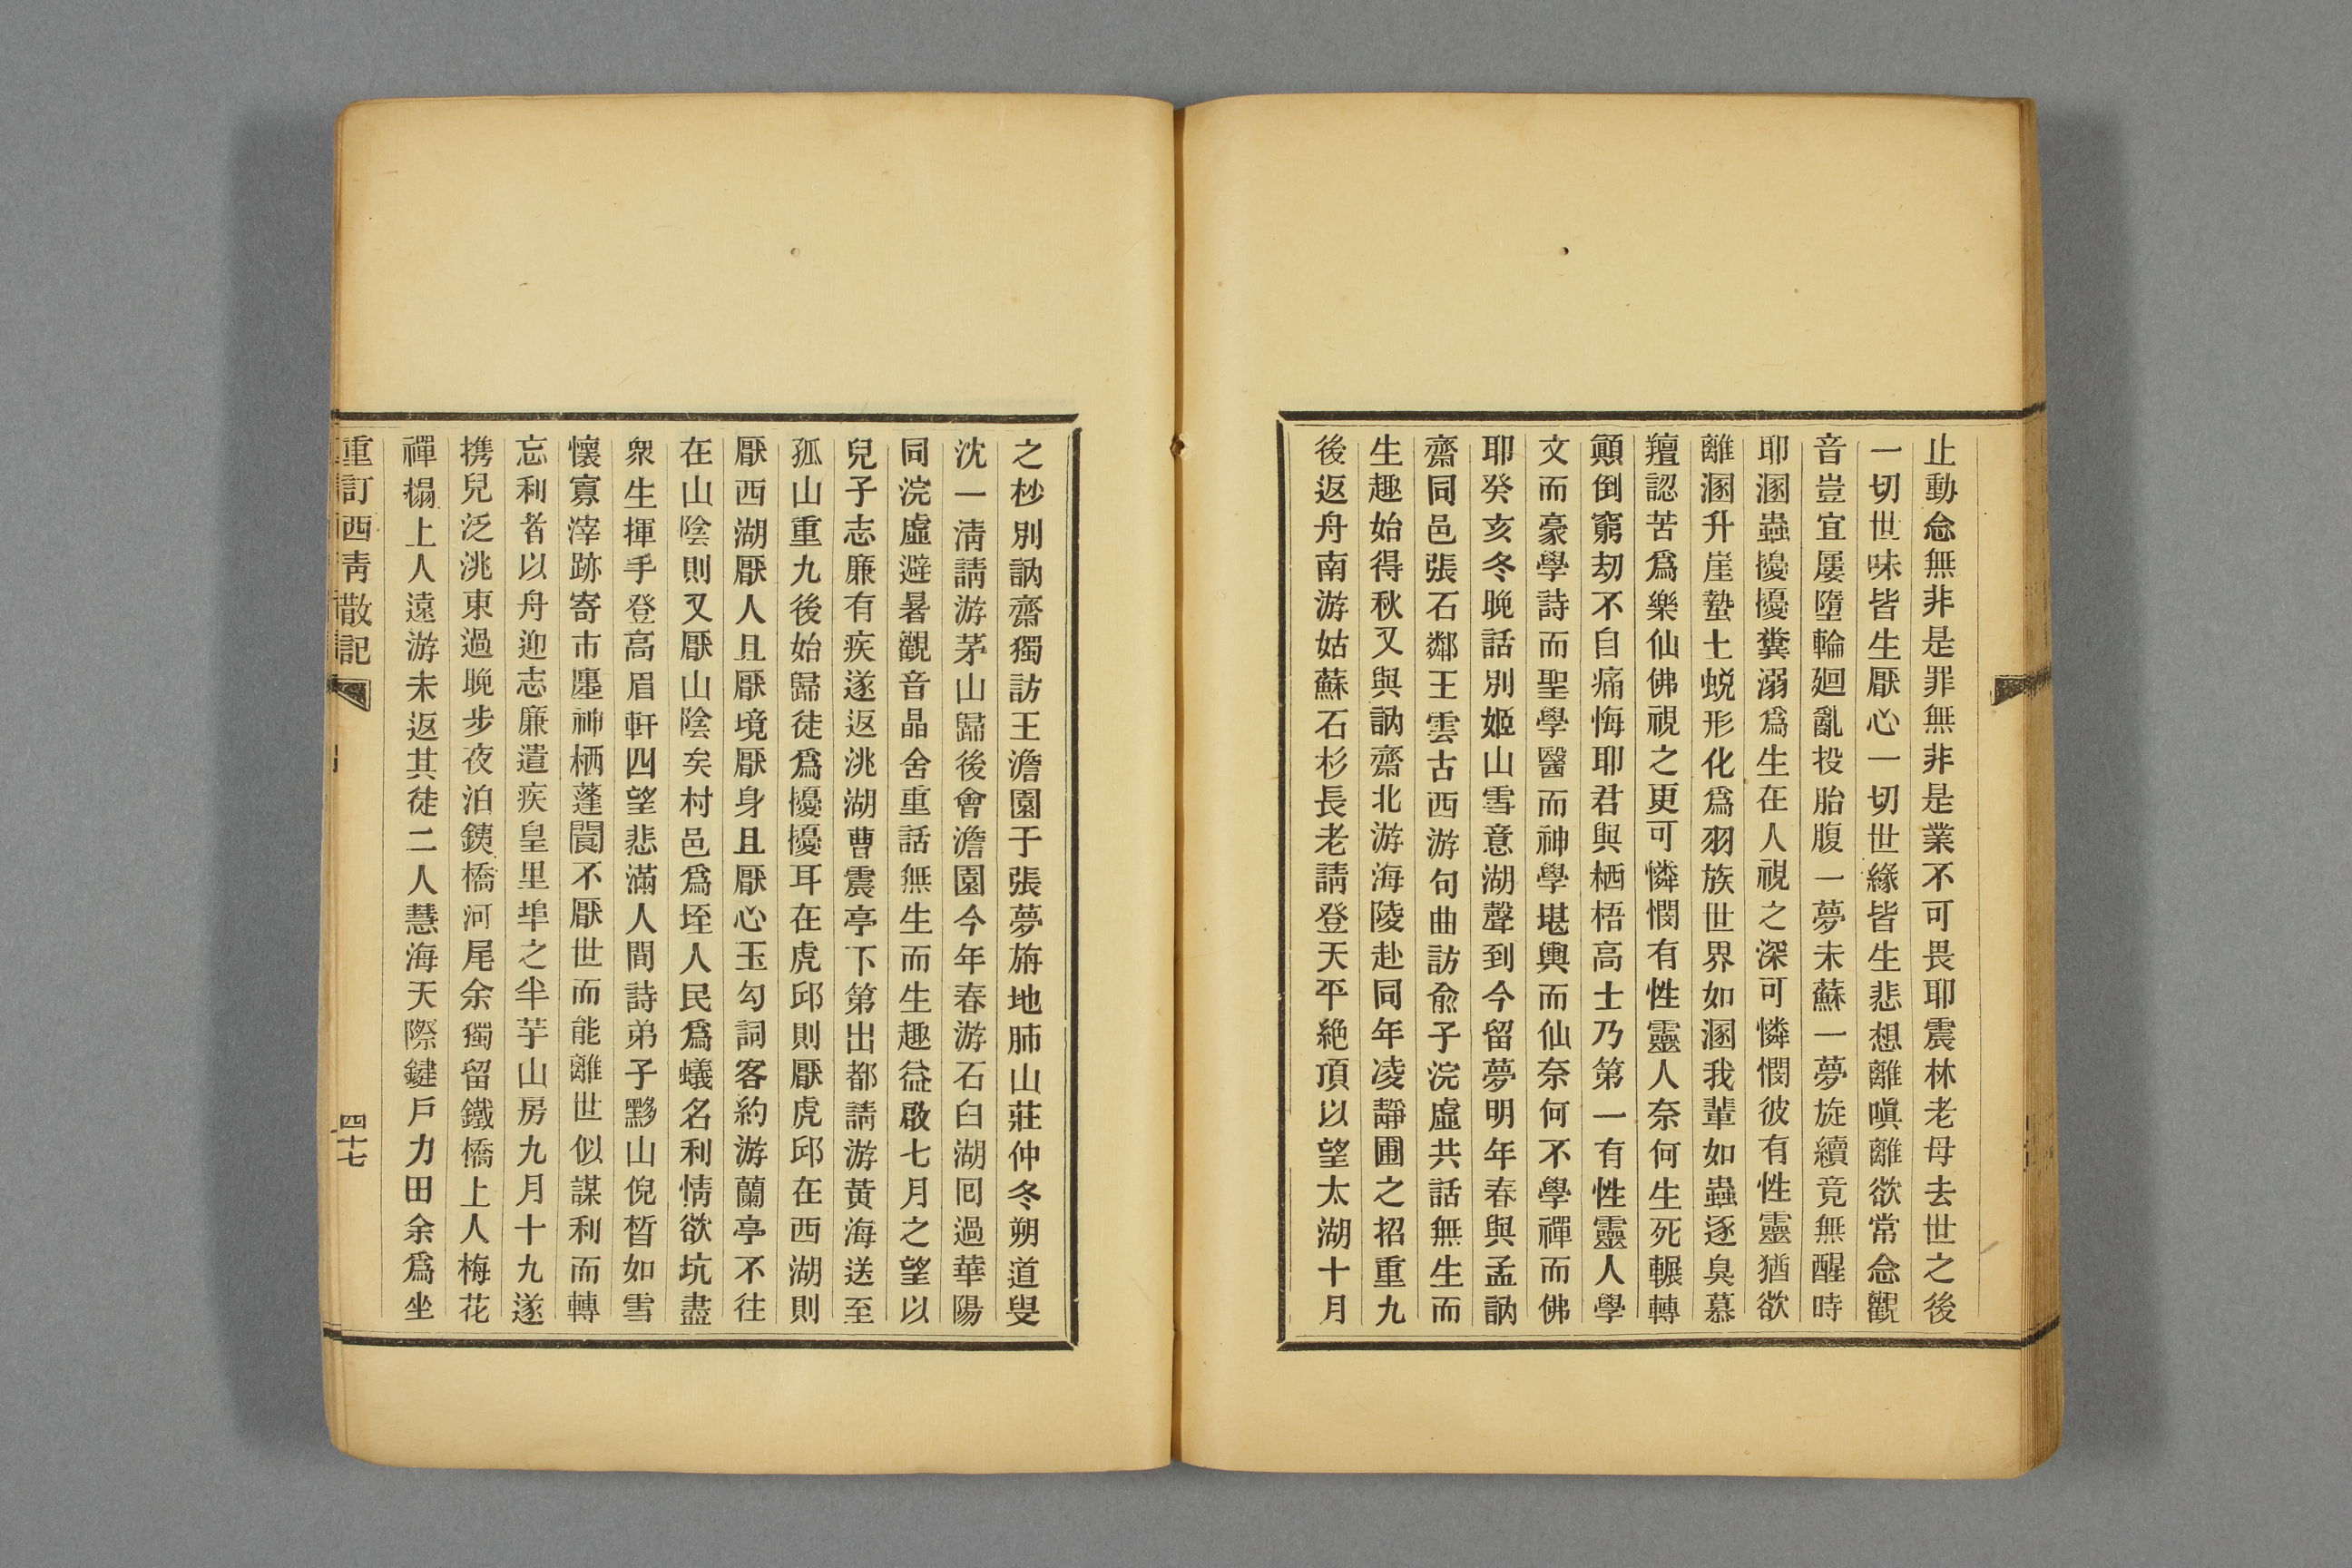 止動念無非是罪無非是業不可畏耶震林老母去世之後
一切世味皆生厭心一切世緣皆生悲想離嗔離欲常念觀
音豈宜屢墮輪廻亂投胎腹一夢未蘇一夢旋續竟無醒時
耶溷蟲擾擾糞溺爲生在人視之深可憐憫彼有性靈猶欲
離溷升崖蟄土蜕形化爲羽族世界如溷我輩如蟲逐臭慕
羶認苦爲樂仙佛視之更可憐憫有性靈人奈何生死輾轉
顛倒窮劫不自痛悔耶君與栖梧高士乃第一有性靈人學
文而豪學詩而聖學醫而神學堪輿而仙奈何不學禪而佛
耶癸亥冬晚話別姬山雪意湖聲到今留夢明年春與孟訥
齋同邑張石鄰王雲古西游句曲訪俞子浣虛共話無生而
生趣始得秋又與訥齋北游海陵赴同年凌靜圃之招重九
後返舟南游姑蘇石杉長老請登天平絶頂以望太湖十月
之杪別訥齋獨訪王澹園于張夢旃地肺山莊仲冬朔道叟
沈一清請游茅山歸後會澹園今年春游石臼湖囘過華陽
同浣虛避暑觀音晶舍重話無生而生趣益啟七月之望以
兒子志廉有疾遂返洮湖曹震亭下第出都請游黃海送至
孤山重九後始歸徒爲擾擾耳在虎邱則厭虎邱在西湖則
厭西湖厭人且厭境厭身且厭心玉勾詞客約游蘭亭不往
在山陰則又厭山陰矣村邑爲垤人民爲蟻名利情欲坑盡
衆生揮手登高眉軒四望悲滿人間詩弟子黟山倪晳如雪
懷寡滓跡寄市廛神栖蓬閬不厭世而能離世似謀利而轉
忘利者以舟迎志廉遣疾皇里埠之半芋山房九月十九遂
携兒泛洮東過晚步夜泊銕橋河尾余獨留鐵橋上人梅花
禪榻上人遠游未返其徒二人慧海天際鍵戶力田余爲坐
重訂西青散記
四十七